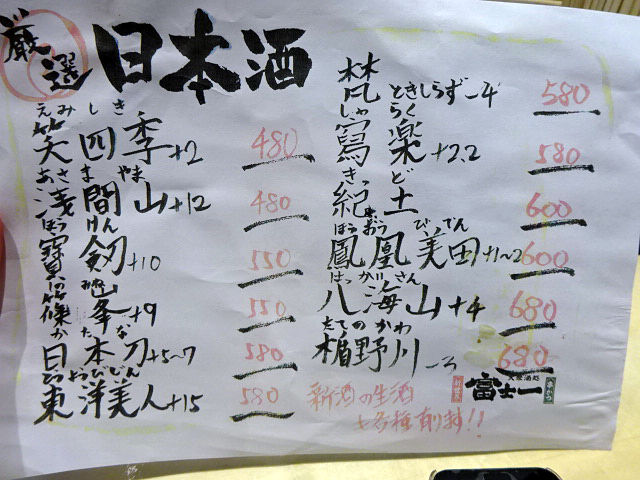 厳選 日本酒
えみしき
笑四季+2 480
あさまやま
浅間山+12 480
ほうけん
寳剱+10 550
峯+9 550
かたな
日本刀+5~7 580
東洋美人+15 580
梵 ときしらず-4 580
しゃらく
寫楽+2.2 580
きっど
紀土 600
ほうおうびでん
鳳凰美田+1~2 600
はっかいさん
八海山+4 680
たてのかわ
楯野川-3 680
新酒の生酒
も多種有ります!!
大衆酒処
富士一
串かつ